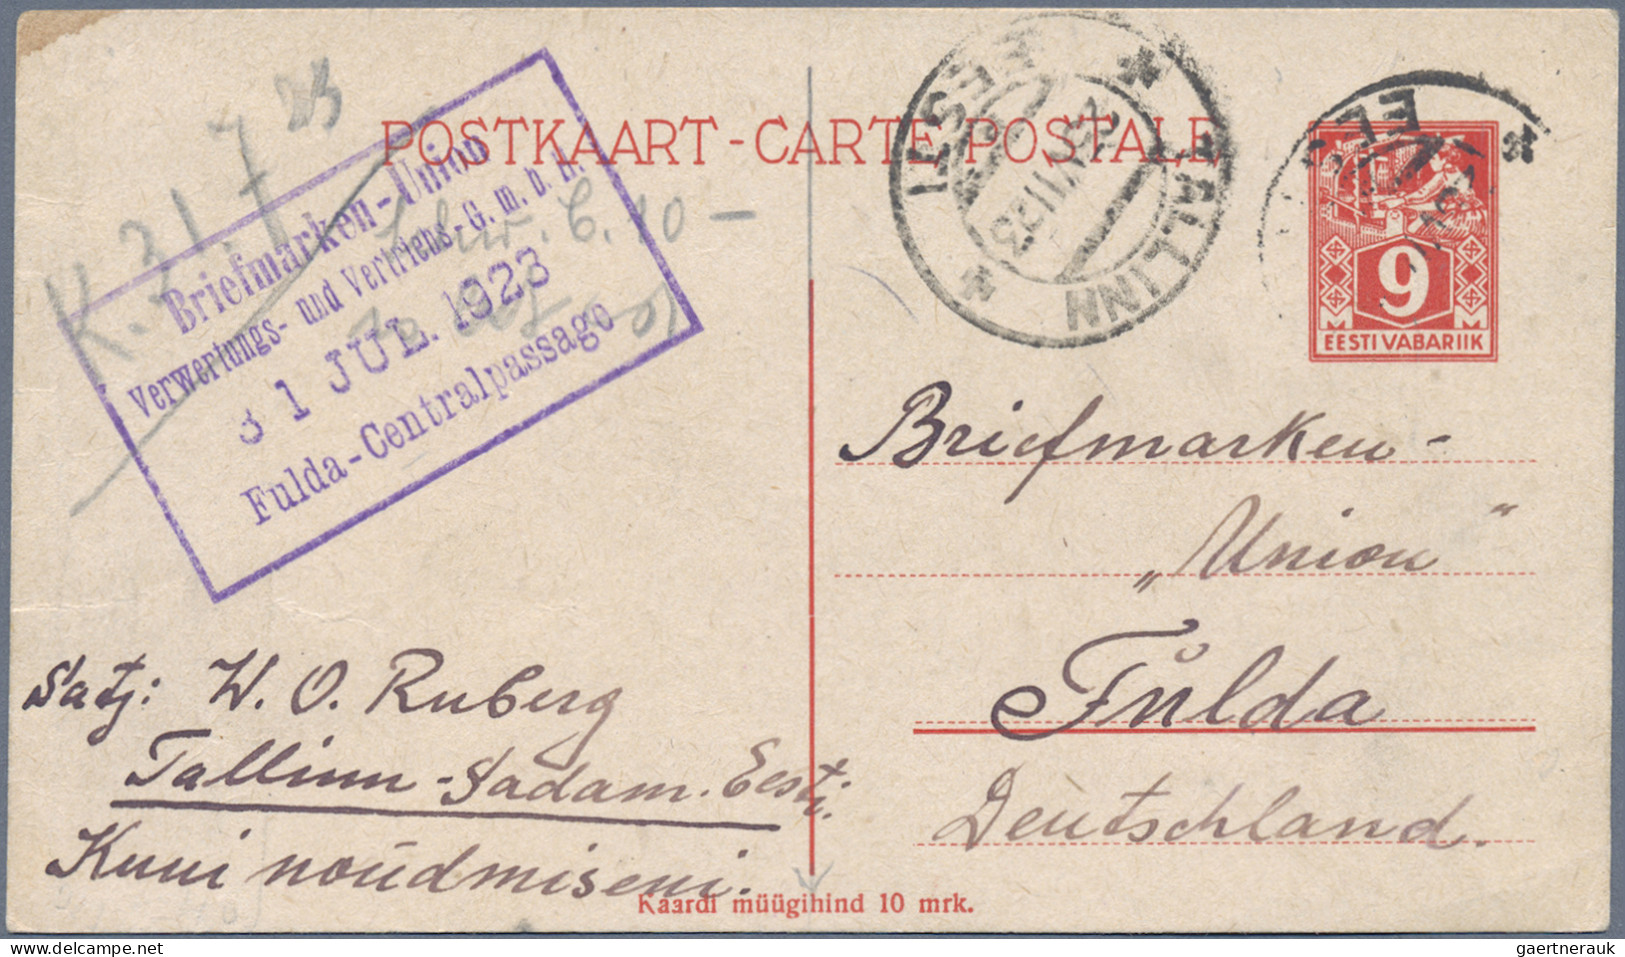 POSTKAART - CARTE POSTALE
Briefmarken-Union
Verwertungs- und Vertriebs-G. m. b. H.
31 JUL. 1923
Fulda-Centralpassage
K. 31. 7. 23
TALLINN
EESTI
25 VII 23
EESTI
9
EESTI VABARIIK
Briefmarken-
„Union“
Fŭlda
Deutschland.
Satj: W. O. Ruberg
Tallinn-Sadam. Eesti.
Kuni noŭdmiseni.
Kaardi müügihind 10 mrk.
gaertnerauk